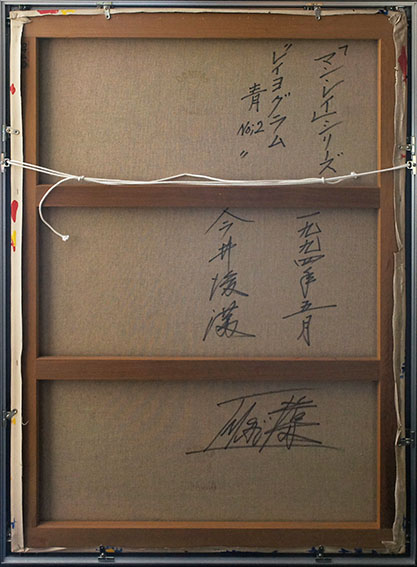 「マンレイ」シリーズ
"レイヨグラム
青 No;2 "
一九九四年五月
今井俊満